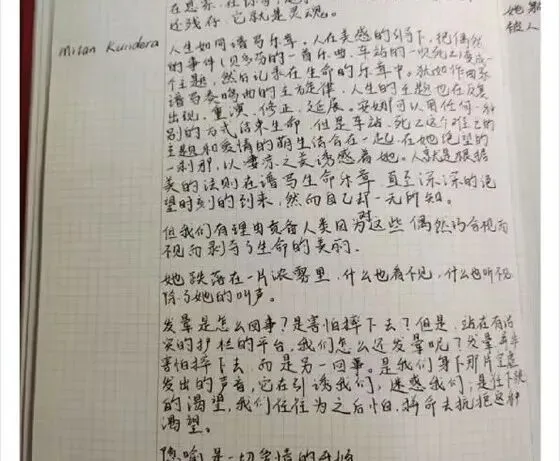 还残存,它就是灵魂。
她
被人
Milan Kundera
人生如同谱写乐章。人在美感的引导下,把偶然
的事件(贝多芬的一首乐曲、车站的一次死亡)变成一
个主题,然后记录在生命的乐章中。犹如作曲家
谱写奏鸣曲的主旋律,人生的主题也在反复
出现、重演、修正、延展。安娜可以用任何一种
别的方式结束生命,但是车站、死亡这个难忘的
主题和爱情的萌生结合在一起,在她绝望的
一刹那,以凄凉之美诱惑着她。人就是根据
美的法则在谱写生命乐章,直至深深的绝
望时刻的到来,然而自己却一无所知。
但我们有理由责备人类因为对这些偶然的合视而
不视而剥夺了生命的美丽。
她跌落在一片浓雾里,什么也看不见,什么也听不见
除了她的叫声。
发晕是怎么回事?是害怕摔下去?但是,站在有结
实的护栏的平台,我们怎么还发晕呢?发晕并非
害怕摔下去,而是另一回事。是我们身下那片空虚
发出的声音,它在引诱我们,迷惑我们;是往下跳
的渴望,我们往往为之后怕,拼命去抗拒这种
渴望。
隐喻是一切爱情的开始